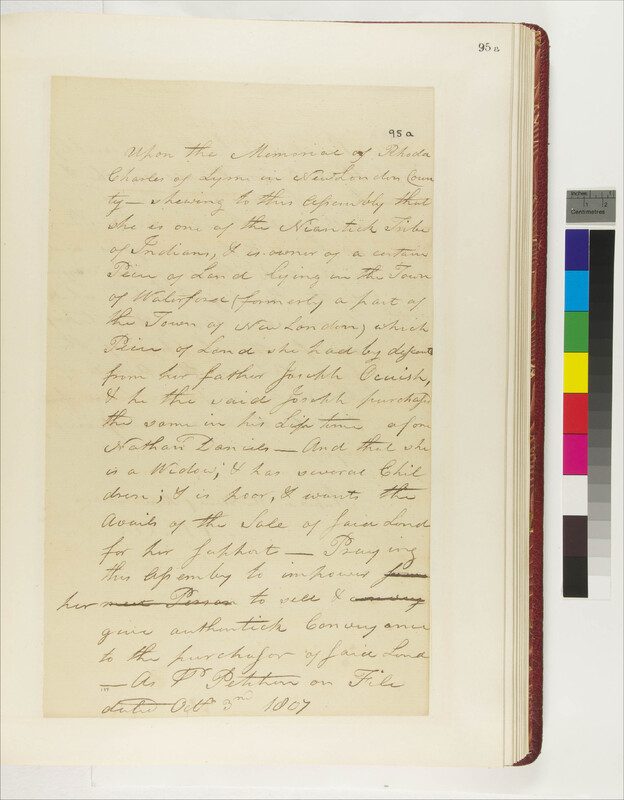 95 a
95 a
Upon the Memorial of Rhoda
Charles of Lyme in New London Coun
ty — shewing to this Assembly that
she is one of the Niantick Tribe
of Indians, & is owner of a certain
Peice of Land lying in the Town
of Waterford (formerly a part of
the Town of New London) which
Peice of Land she had by descent
from her father Joseph Ocuish,
& he the said Joseph purchased
the same in his Life time of one
Nathan Daniels — And that she
is a Widow; & has several Chil
dren; & is poor, & wants the
Avails of the Sale of said Land
for her Support — Praying
this Assembly to impower some
her meet Person to sell & convey
give authentick Conveyance
to the purchasor of said Land
— As Pr Petition on File
dated Octr 3rd 1807
inches 1 2
Centimetres